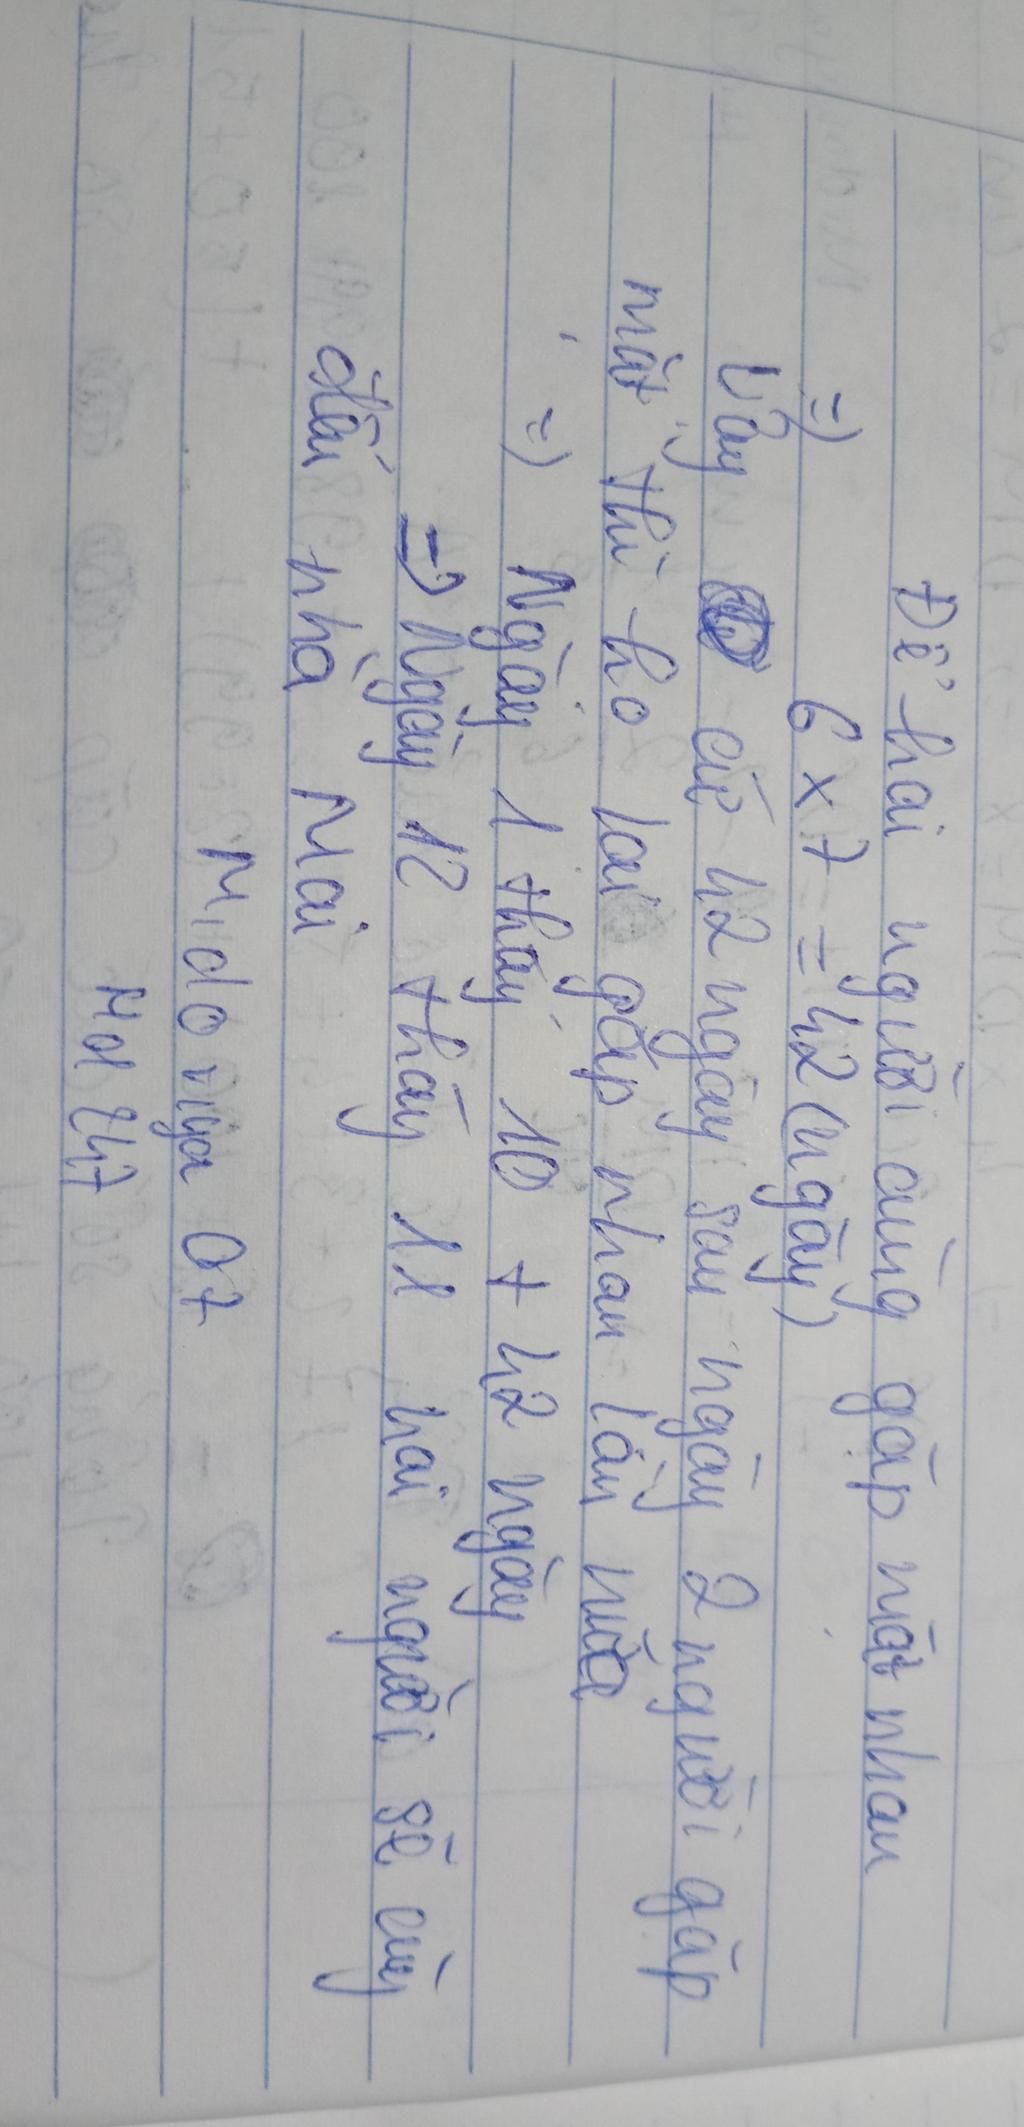 Để hai người cùng gặp mặt nhau
=) 6 x 7 = 42 (ngày)
Vậy cứ 42 ngày sau ngày 2 người gặp
mặt thì họ lại gặp nhau lần nữa
=) Ngày 1 tháng 10 + 42 ngày
=) Ngày 12 tháng 11 hai người sẽ cùng
đến nhà Mai
Midoriya 07
Hd 247